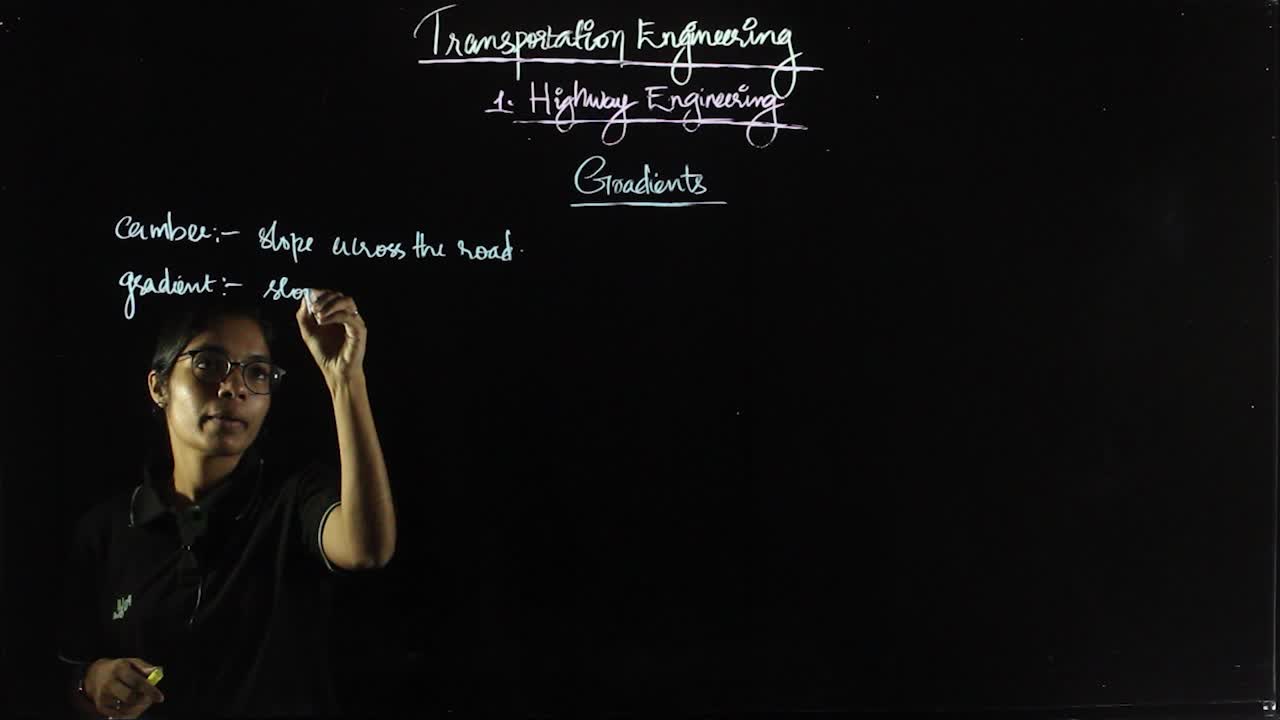 Transportation Engineering
1. Highway Engineering
Gradients
camber:- slope across the road.
gradient:- slop